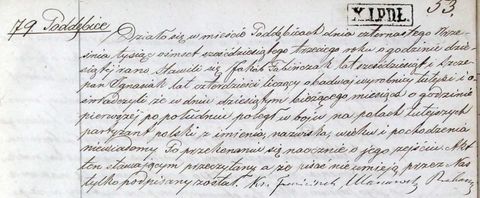 X.I.P.D.Ł.
53.
79 Poddębice Działo się w mieście Poddębicach dnia czternastego Wrze-
śnia tysiąc ośmset sześćdziesiątego trzeciego roku o godzinie dzie-
siątej rano. Stawili się Jakub lat sześćdziesiąt i Szcze-
pan Ignasiak lat czterdzieści liczący obadwaj wyrobnicy tutejsi i o-
świadczyli że w dniu dziesiątym bieżącego miesiąca o godzinie
pierwszej po południu poległ w boju na polach tutejszych
partyzant polski z imienia, nazwiska, wieku i pochodzenia
niewiadomy. Po przekonaniu się naocznie o jego zejściu Akt
ten stawającym przeczytany a że pisać nie umieją przez Nas
tylko podpisany został. Ks. Franciszek